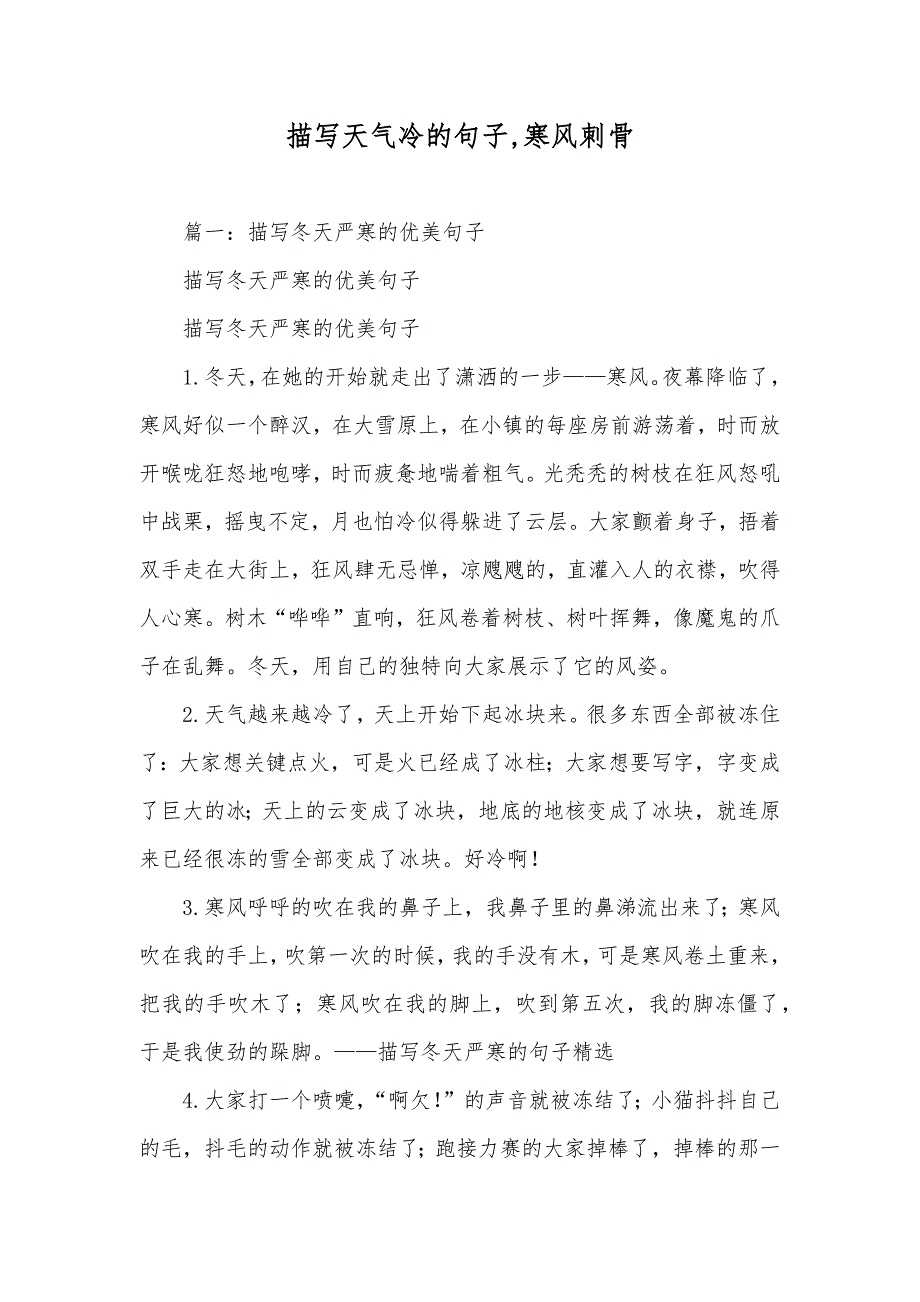 描写天气冷的句子,寒风刺骨
篇一：描写冬天严寒的优美句子
描写冬天严寒的优美句子
描写冬天严寒的优美句子
1.冬天，在她的开始就走出了潇洒的一步——寒风。夜幕降临了，
寒风好似一个醉汉，在大雪原上，在小镇的每座房前游荡着，时而放
开喉咙狂怒地咆哮，时而疲惫地喘着粗气。光秃秃的树枝在狂风怒吼
中战栗，摇曳不定，月也怕冷似得躲进了云层。大家颤着身子，捂着
双手走在大街上，狂风肆无忌惮，凉飕飕的，直灌入人的衣襟，吹得
人心寒。树木“哗哗”直响，狂风卷着树枝、树叶挥舞，像魔鬼的爪
子在乱舞。冬天，用自己的独特向大家展示了它的风姿。
2.天气越来越冷了，天上开始下起冰块来。很多东西全部被冻住
了：大家想关键点火，可是火已经成了冰柱；大家想要写字，字变成
了巨大的冰；天上的云变成了冰块，地底的地核变成了冰块，就连原
来已经很冻的雪全部变成了冰块。好冷啊！
3.寒风呼呼的吹在我的鼻子上，我鼻子里的鼻涕流出来了；寒风
吹在我的手上，吹第一次的时候，我的手没有木，可是寒风卷土重来，
把我的手吹木了；寒风吹在我的脚上，吹到第五次，我的脚冻僵了，
于是我使劲的跺脚。——描写冬天严寒的句子精选
4.大家打一个喷嚏，“啊欠！”的声音就被冻结了；小猫抖抖自己
的毛，抖毛的动作就被冻结了；跑接力赛的大家掉棒了，掉棒的那一